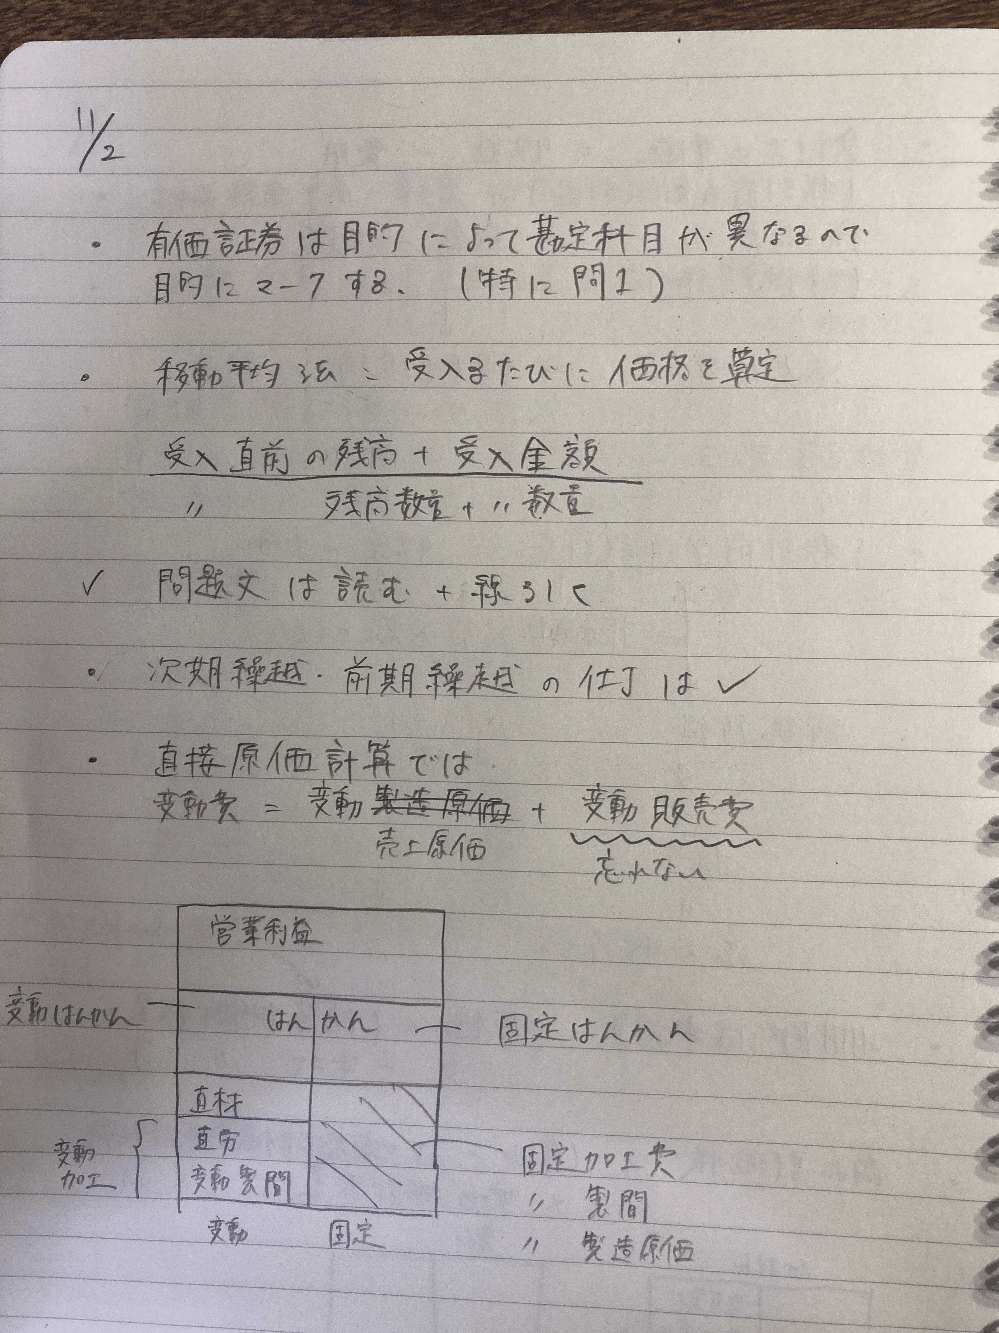 11/2
・有価証券は目的によって勘定科目が異なるので
目的にマークする。(特に問1)
・移動平均法 = 受入るたびに価格を算定
受入直前の残高 + 受入金額
〃 残高数量 + 〃 数量
✓ 問題文は読む + 線引く
・次期繰越・前期繰越の仕丁は✓
・直接原価計算では
変動費 = 変動製造原価 + 変動販売費
売上原価
忘れない
営業利益
変動はんかん
はんかん
固定はんかん
直材
直労
変動製間
変動
加工
固定加工費
〃 製間
〃 製造原価
変動
固定